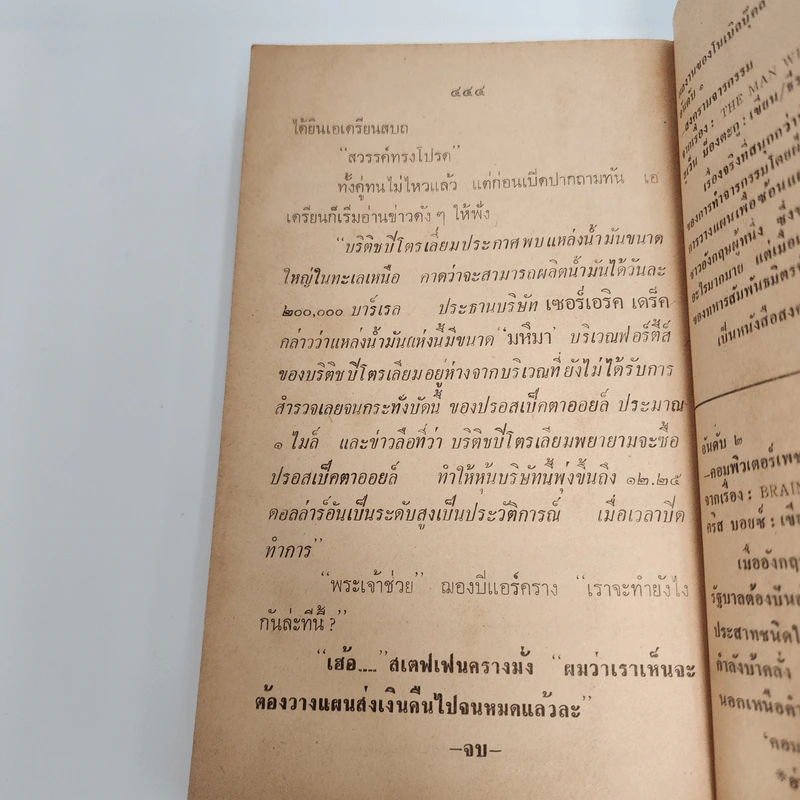 ๔๕๔
ได้ยินเอเดรียนสบถ
“สวรรค์ทรงโปรด”
ทั้งคู่ทนไม่ไหวแล้ว แต่ก่อนเปิดปากถามทัน เอ
เดรียนก็เริ่มอ่านข่าวดัง ๆ ให้ฟัง
“บริติชปิโตรเลี่ยมประกาศพบแหล่งน้ำมันขนาด
ใหญ่ในทะเลเหนือ คาดว่าจะสามารถผลิตน้ำมันได้วันละ
๒๐๐,๐๐๐ บาร์เรล ประธานบริษัท เซอร์เอริค เดร็ค
กล่าวว่าแหล่งน้ำมันแห่งนี้มีขนาด ‘มหึมา’ บริเวณฟอร์ตี้ส์
ของบริติชปิโตรเลียมอยู่ห่างจากบริเวณที่ยังไม่ได้รับการ
สำรวจเลยจนกระทั่งบัดนี้ ของปรอสเป็คตาออยล์ ประมาณ
๑ ไมล์ และข่าวลือที่ว่า บริติชปิโตรเลียมพยายามจะซื้อ
ปรอสเป็คตาออยล์ ทำให้หุ้นบริษัทนี้พุ่งขึ้นถึง ๑๒.๒๕
ดอลล่าร์อันเป็นระดับสูงเป็นประวัติการณ์ เมื่อเวลาปิด
ทำการ”
“พระเจ้าช่วย” ฌองปิแอร์คราง “เราจะทำยังไง
กันล่ะทีนี้ ?”
“เฮ้อ....” สเตฟเฟนครางมั่ง “ผมว่าเราเห็นจะ
ต้องวางแผนส่งเงินคืนไปจนหมดแล้วละ”
—จบ—
อันดับ ๑
จากเรื่อง : THE MAN
เรื่องจริงที่สนุกกว่า
ของการทำจารกรรมโดย
การวางแผนเพื่อซ้อนแผน
ชาวอังกฤษผู้หนึ่ง ซึ่ง
อะไรมากมาย แต่เมื่อ
ของทหารสัมพันธมิตร
เป็นหนังสือสง
อันดับ ๒
—คอมพิวเตอร์เพช
จากเรื่อง : BRAIN
คริส บอยซ์ : เขีย
เมื่ออังกฤษ
รัฐบาลต้องบัน
ประสาทชนิดใ
กำลังบ้าคลั่ง
นอกเหนือคำ
‘คอม